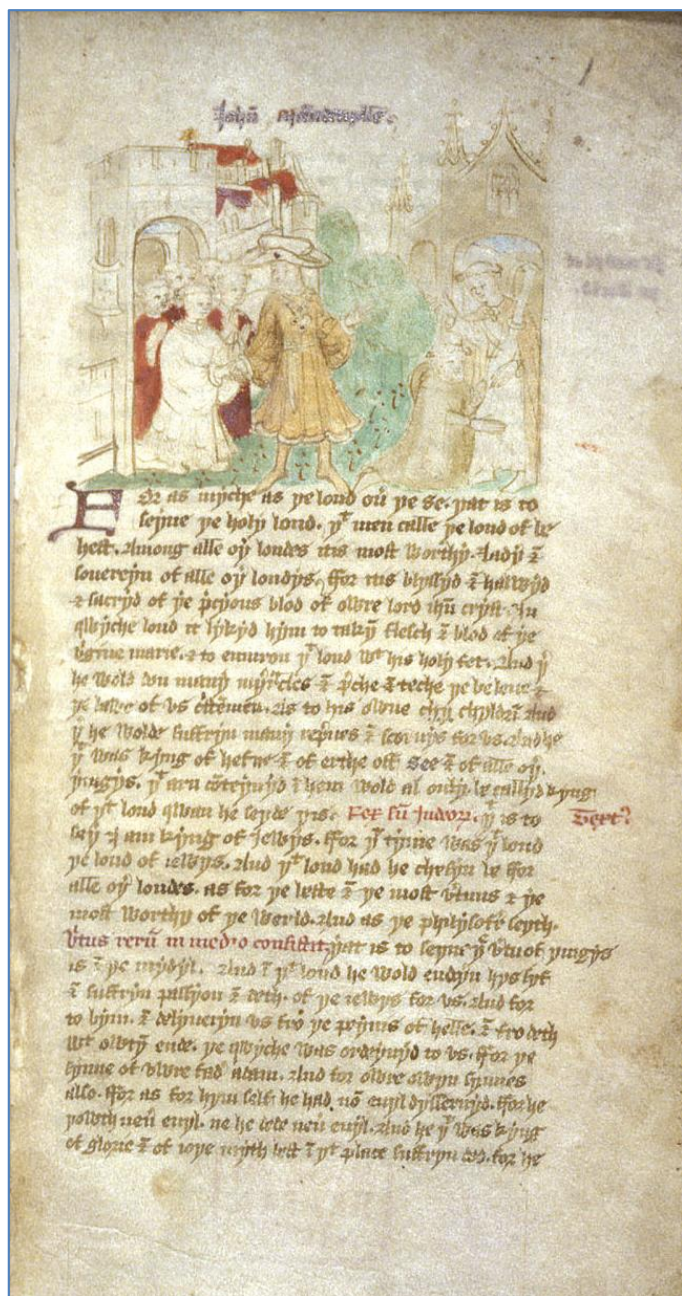 1
John Maundevylle.
For as myche as ye lond ou̅ ye se. yat is to
seyne ye holy lond. yt men calle ye lond of be
hest. Among alle oy̅ londes itis most worthy. lady &
souereyn of alle oy̅ londys. ffor itis blyssyd & halwyd
& sacryd of ye p̅cyous blod of owre lord ihu̅ cryst. In
qwyche lond it lykyd hym to taky̅ flesch & blod of ye
v̅gine marie. & to enuiron yt lond wt his holy fet. And y̅
he wold don many myr̅cles & p̅che & teche ye beleue &
ye lawe of vs c̅ste̅men. As to his owne chyldr̅ And
y̅ he wolde suffryn many repr̅ues & scornys for vs. And he
y̅ was kyng of hefne & of erthe off See & of alle oy̅
yingys. yt arn co̅teynyd i̅ hem wold al only be callyd kyng
of yt lond qwan he seyde yis. Rex su̅ Judeor̅. y̅ is to
sey I am kyng of Jewys. ffor y̅ tyme was yt lond
ye lond of iewys. And yt lond had he chesyn be ffor
alle oy̅ londes. as for ye beste & ye most v̅tuus & ye
most worthy of ye werld. And as ye phylysofr̅ seyth.
V̅tus reru̅ in medio consistit. yat is to seyne y̅ v̅tu of yingys
is i̅ ye mydyl. And i̅ yt lond he wold endyn hys lyf
& suffryn passyon & deth. of ye iewys for vs. And for
to byin. & delyueryn vs fro̅ ye peynis of helle. & fro deth
wt owty̅ ende. ye qwyche was ordeynyd to vs. ffor ye
synne of owre fad̅ adam. And for owre owyn synnes
also. ffor as for hym self he had no̅ euyl dysseruyd. ffor he
yowth neu̅ euyl. ne he dede neu̅ euyl. And he y̅ was kyng
of glorie & of ioye myth best i̅ yt place suffryn ded. for he